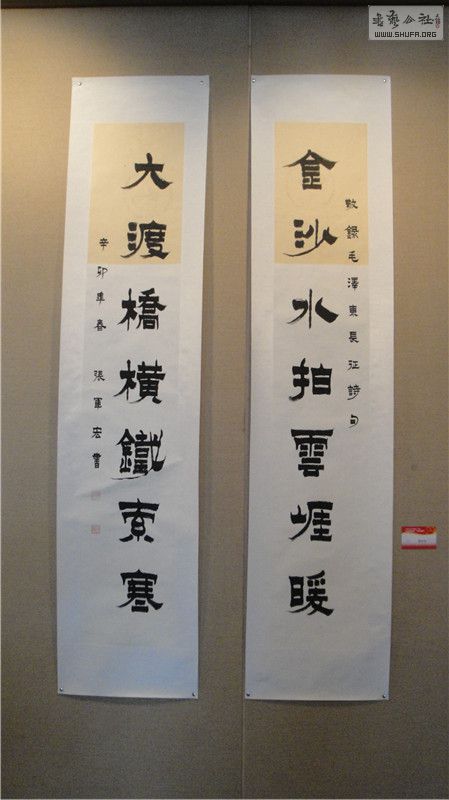 金沙水拍雲崕暖
敬錄毛澤東長征詩句
大渡橋橫鐵索寒
辛卯年春 張軍宏書
WWW.SHUFA.ORG